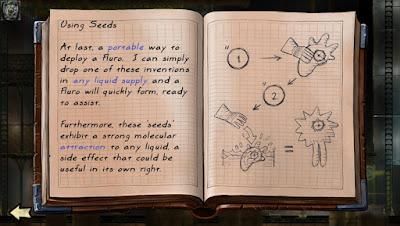 Using Seeds
At last, a portable way to
deploy a Fluro. I can simply
drop one of these inventions
in any liquid supply and a
Fluro will quickly form, ready
to assist.
Furthermore, these 'seeds'
exhibit a strong molecular
attraction to any liquid, a
side effect that could be
useful in its own right.
1
2
=